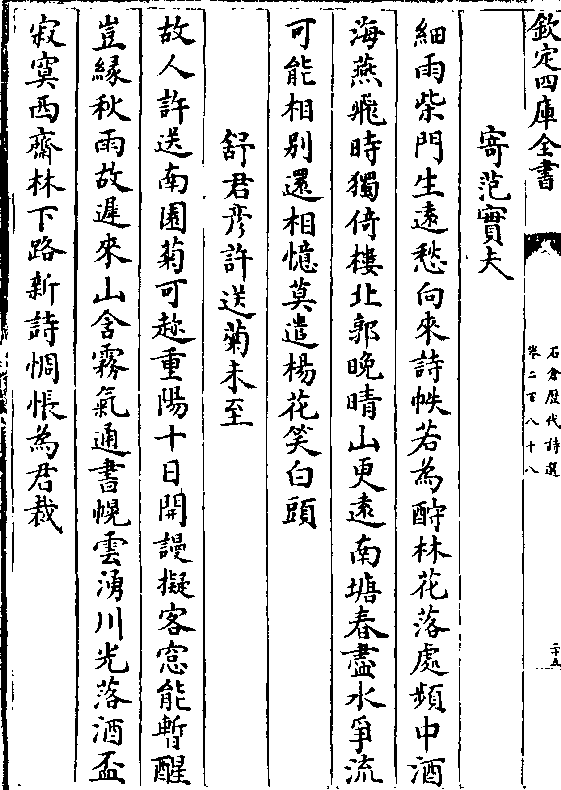 欽定四庫全書
石倉歴代詩選
卷二百八十八
二十五
寄范實夫
細雨柴門生遠愁向來詩帙若為酧林花落處頻中酒
海燕飛時獨倚樓北郭晚晴山更遠南塘春盡水爭流
可能相别還相憶莫遣楊花笑白頭
舒君彦許送菊未至
故人許送南園菊可趂重陽十日開謾擬客窓能暫醒
豈緣秋雨故遲來山舍霧氣通書幌雲湧川光落酒盃
寂寞西齋林下路新詩惆悵為君裁